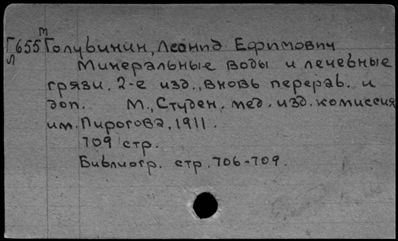 Г655 т Голубинин, Леонид Ефимович
л Минеральные воды и лечебные
грязи. 2-е изд., вновь перераб. и
доп. М., Студен. мед. изд. комиссия
им. Пирогова, 1911.
709 стр.
Библиогр. стр. 706-709.